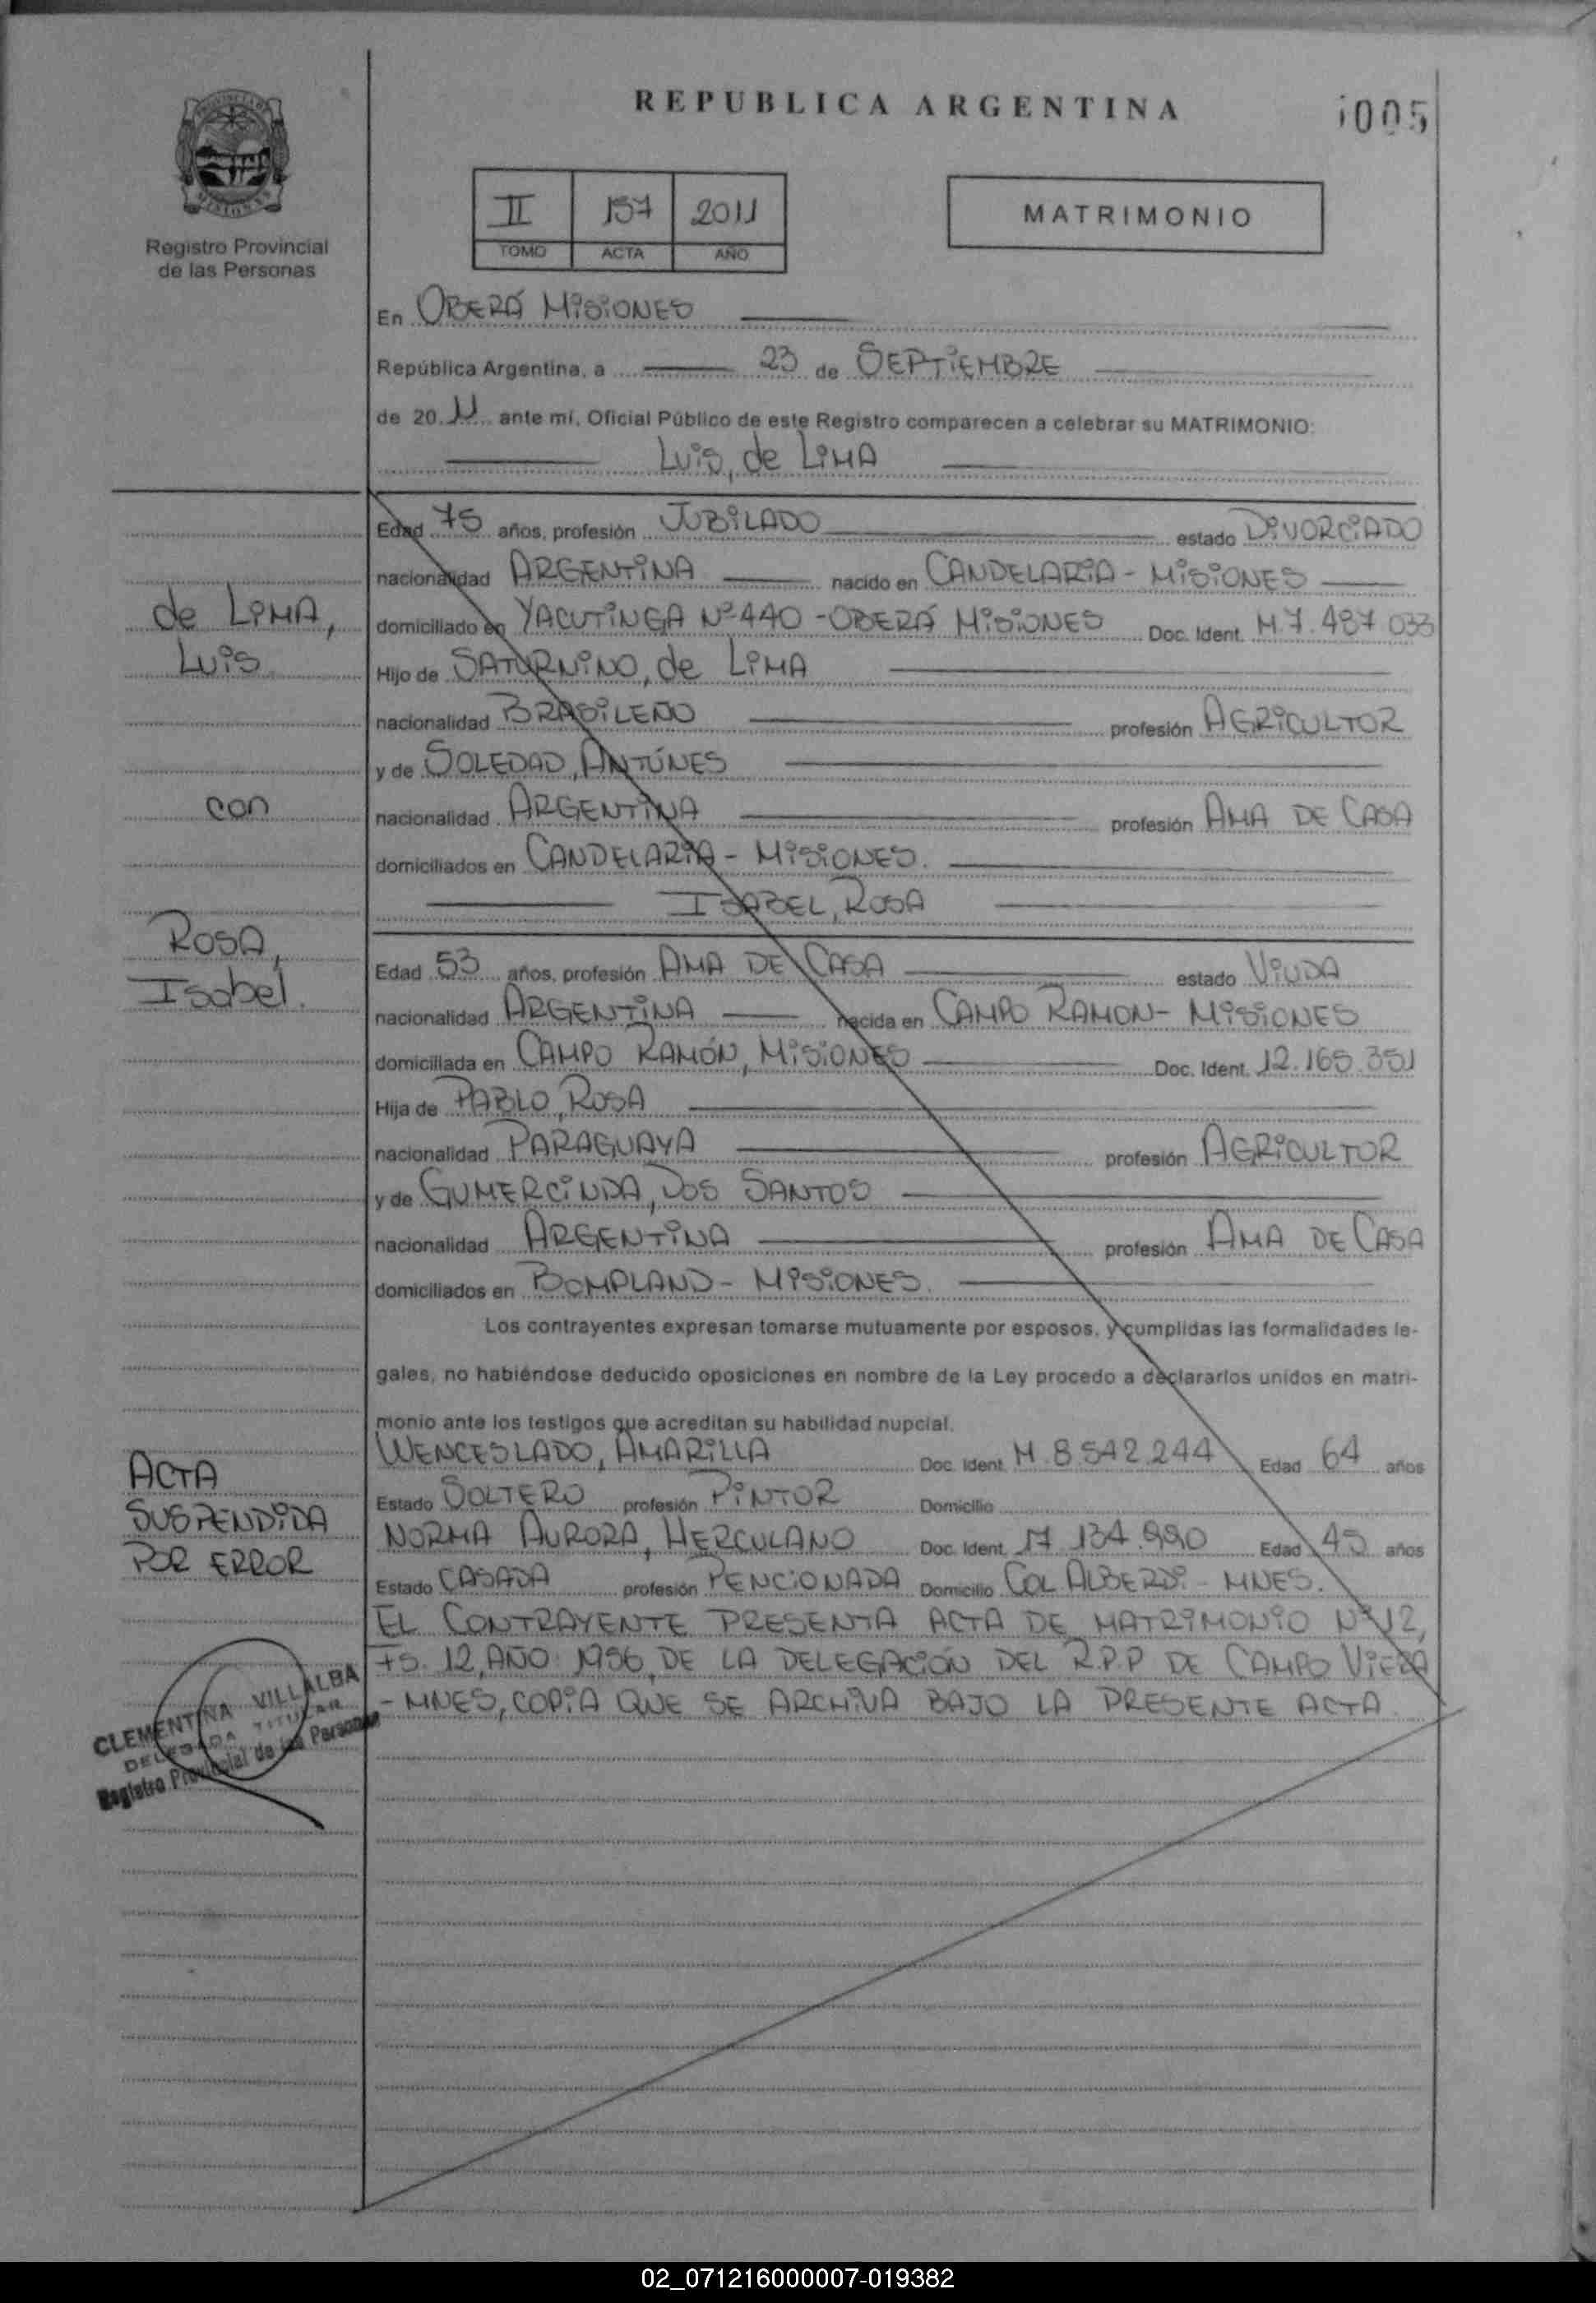 REPUBLICA ARGENTINA
005
MISIONES
Registro Provincial
de las Personas
II 157 2011
TOMO ACTA AÑO
MATRIMONIO
En OBERÁ MISIONES
República Argentina, a 23 de SEPTIEMBRE
de 2011 ante mí, Oficial Público de este Registro comparecen a celebrar su MATRIMONIO:
Luis, de LIMA
Edad 75 años, profesión JUBILADO estado DIVORCIADO
nacionalidad ARGENTINA nacido en CANDELARIA - MISIONES
de LIMA,
domiciliado en YACUTINGA Nº 440 - OBERÁ MISIONES Doc. Ident. M.7.487.033
Luis
Hijo de SATURNINO, de LIMA
nacionalidad BRASILEÑO profesión AGRICULTOR
y de SOLEDAD, ANTÚNES
con
nacionalidad ARGENTINA profesión AMA DE CASA
domiciliados en CANDELARIA - MISIONES.
ISABEL, ROSA
ROSA,
Edad 53 años, profesión AMA DE CASA estado VIUDA
Isabel.
nacionalidad ARGENTINA nacida en CAMPO RAMON - MISIONES
domiciliada en CAMPO RAMÓN, MISIONES Doc. Ident. 12.165.351
Hija de PABLO, ROSA
nacionalidad PARAGUAYA profesión AGRICULTOR
y de GUMERCINDA, DOS SANTOS
nacionalidad ARGENTINA profesión AMA DE CASA
domiciliados en BOMPLAND - MISIONES.
Los contrayentes expresan tomarse mutuamente por esposos, y cumplidas las formalidades le-
gales, no habiéndose deducido oposiciones en nombre de la Ley procedo a declararlos unidos en matri-
monio ante los testigos que acreditan su habilidad nupcial.
WENCESLADO, AMARILLA Doc. Ident. M.8.542.244 Edad 64 años
ACTA
Estado SOLTERO profesión PINTOR Domicilio
SUSPENDIDA
NORMA AURORA, HERCULANO Doc. Ident. 17.134.990 Edad 45 años
POR ERROR
Estado CASADA profesión PENCIONADA Domicilio COL ALBERDI - MNES.
EL CONTRAYENTE PRESENTA ACTA DE MATRIMONIO Nº 12,
FS. 12, AÑO: 1956, DE LA DELEGACIÓN DEL R.P.P DE CAMPO VIERA
- MNES, COPIA QUE SE ARCHIVA BAJO LA PRESENTE ACTA.
CLEMENTINA VILLALBA
DELEGADA TITULAR
Registro Provincial de las Personas
02_071216000007-019382